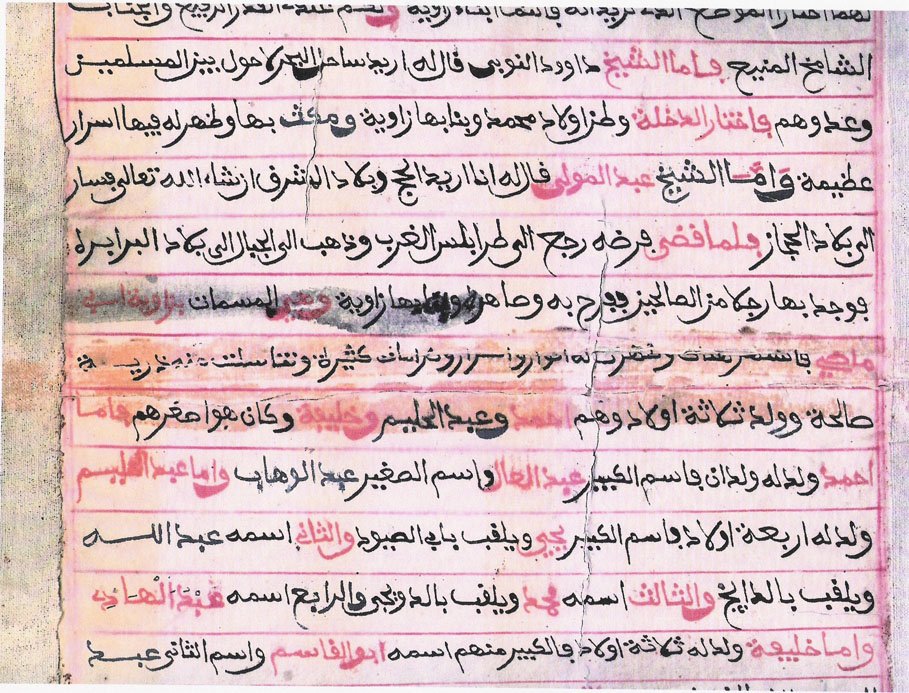 لهما اختارا الموضع الذي تريدانه فالتما ابتناء زاوية
الشامخ المنيع فاما الشيخ داوود النوبي قال له اريد ساحل البحر لاحول بين المسلمين
وعدوهم فاختار الدخلة وطن اولاد محمد وبنا بها زاوية ومكث بها وظهر له فيها اسرار
عظيمة وَامَّا الشيخ عبد المولى فال له انا اريد الحج وبلاد المشرف ان شاء الله تعالى فسار
الى بلاد الحجاز فلما فضى فرضه رجع الى طرابلس الغرب وذهب الى الجبال الى بلاد البرابرة
فوجد بها رجلا من الصالحين ففرح به وصاهره وبنا بها زاوية وهي المسمات بزاوية ابي
ماضي وظهرت له انوار واسرار وكرامات كثيرة وتناسلت منه ذرية
صالحة وولد ثلاثة اولاد وهم احمد وعبد الحليم وخليفة وكان هو اصغرهم فاما
احمد ولد له ولدان فاسم الكبير عبد العال واسم الصغير عبد الوهاب واما عبد الحليم
ولد له اربعة اولاد فاسم الكبير يحيى ويلقب بابي الصيود والثاني اسمه عبد الله
ويلقب بالدايخ والثالث اسمه محمد ويلقب بالدويحي والرابع اسمه عبْد الْهادي
واما خليفة ولد له ثلاثة اولاد فالكبير منهم اسمه ابو الفاسم واسم الثاني عبد